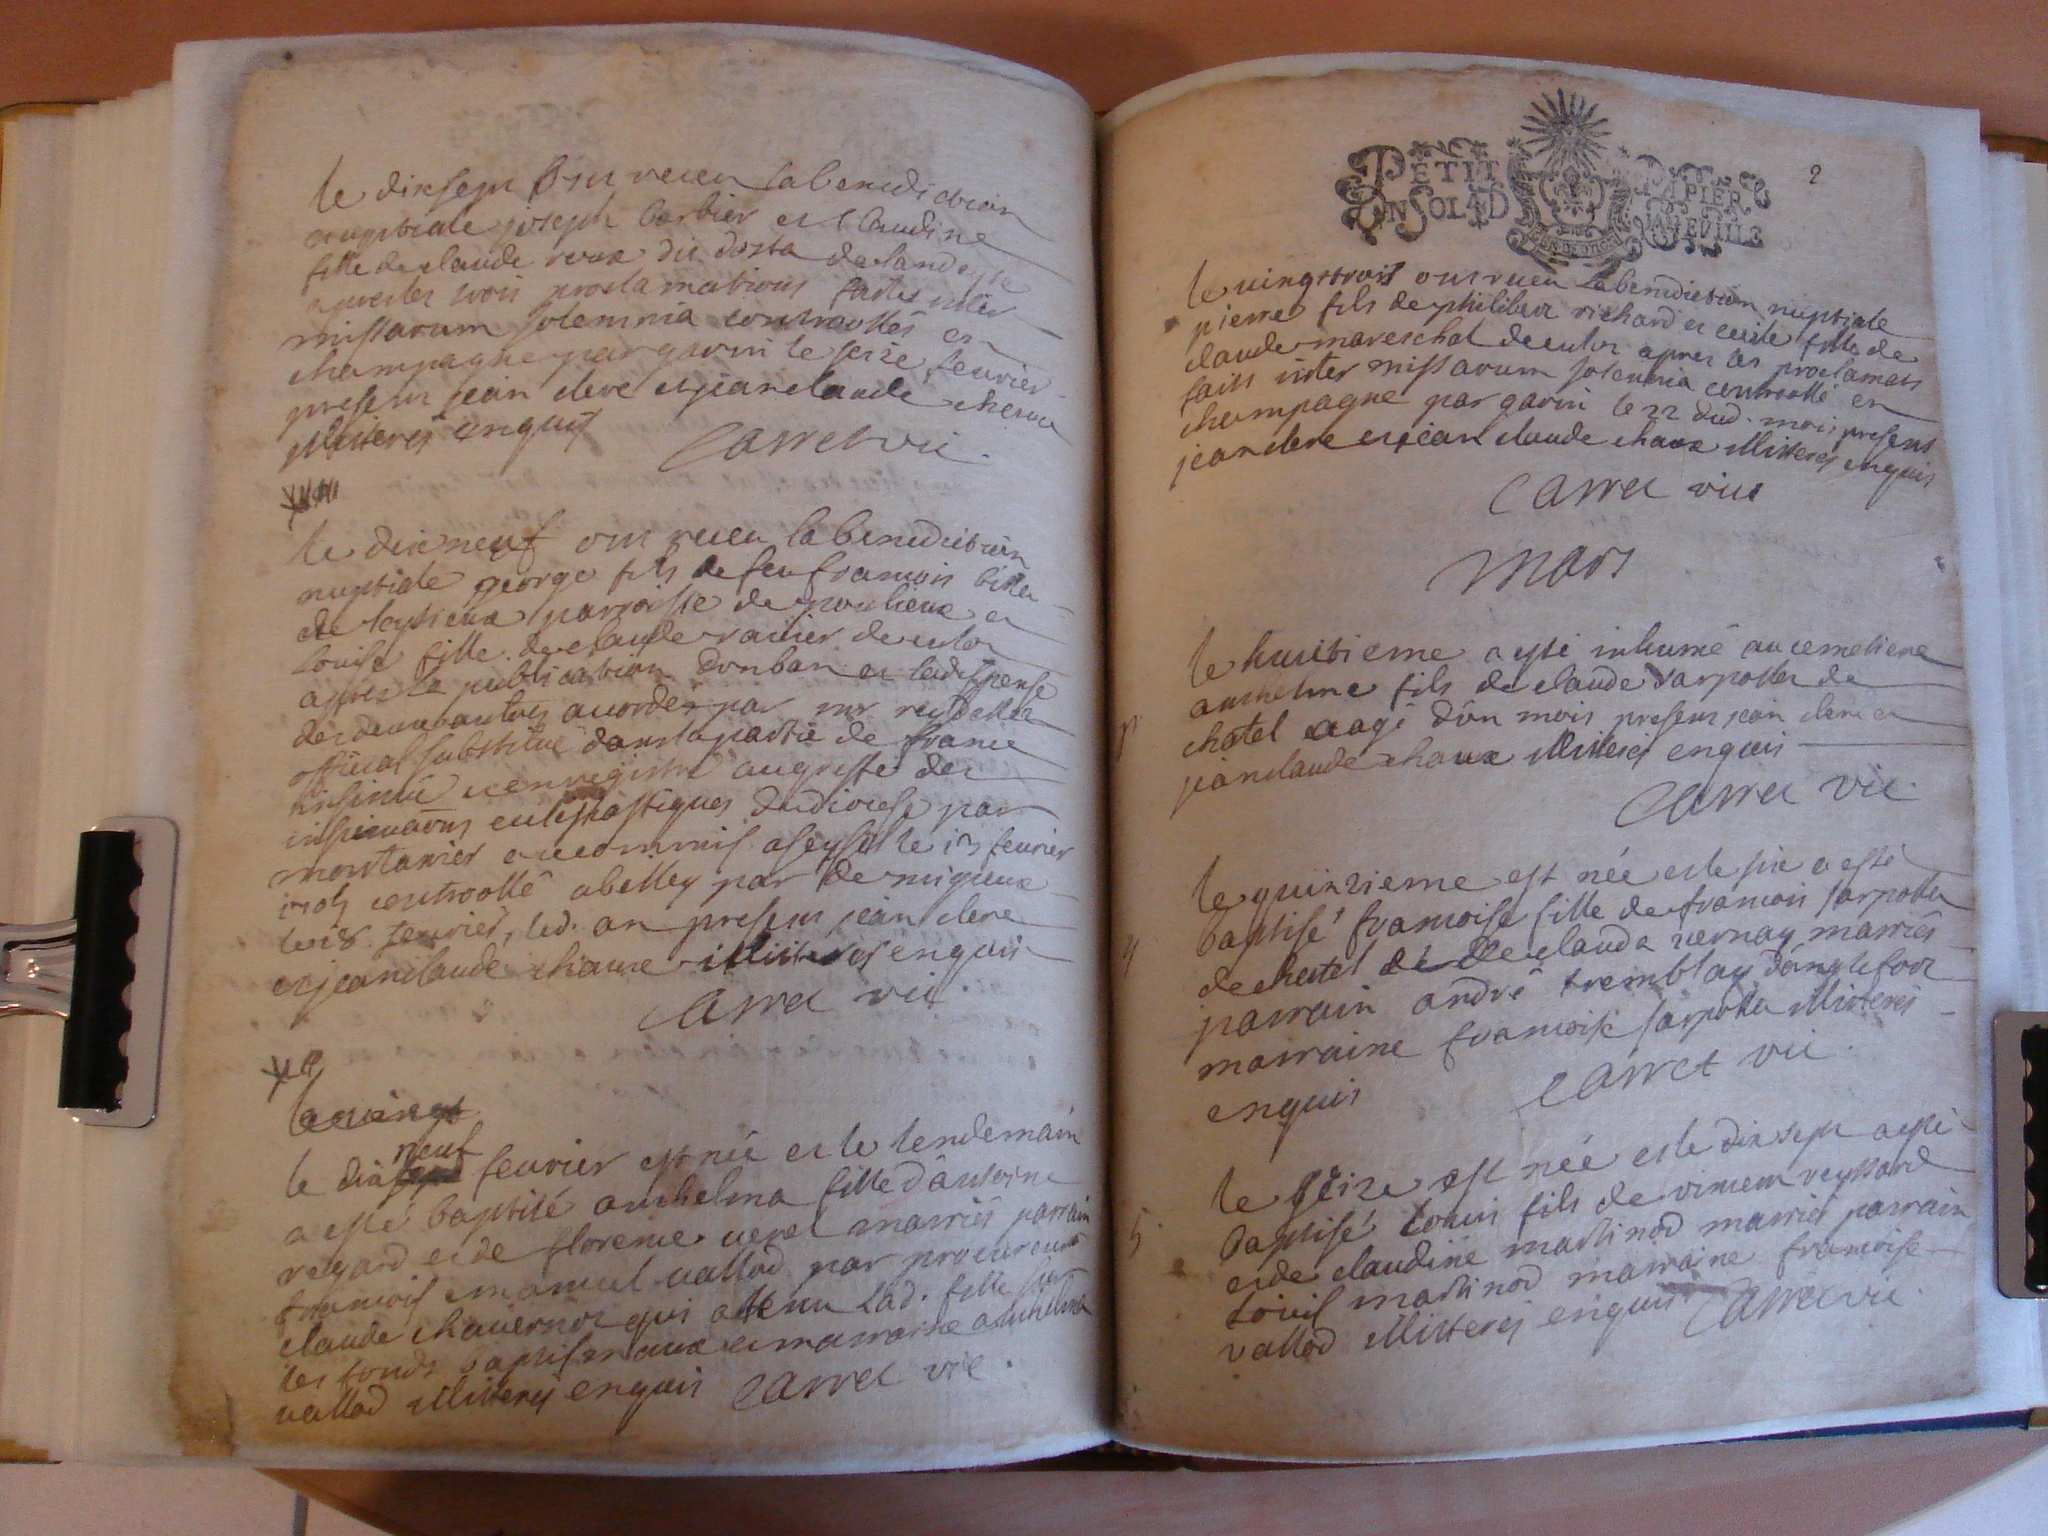 le dixsept ont receu la benediction
nuptiale joseph barbier et Claudine
fille de claude roux dit dosta de landeyse
apres les trois proclamations faites inter
missarum solemnia controollés en
champagne par gavin le seize feurier
present jean clere et jean claude chaux
illitterés enquis
Carrel vic.
le dixneuf ont receu la benediction
nuptiale george fils de feu francois
de leysieux parroisse de poulieux et
Louise fille de claude ravier de culoz
apres la publication d'un ban et la dispense
des deux autres accordée par mr
official substitué dans la partie de france
insinué et enregistré au greffe des
insinuaons eclesiastiques du diocese par
montanier et commis a seyssel le 17 feurier
controollé a belley par de migieux
le 18 feurier, led. an present jean clere
et jean claude chaux illitterés enquis
Carrel vic.
le vingt
neuf
le dix sept feurier est née et le lendemain
a esté baptisé anthelma fille d'antoine
regard et de florence verel mariés parrain
francois emanuel vallod par procureur
claude chavernoz qui a tenu lad. fille sur
les fonds baptismaux et marraine anthelma
vallod illitterés enquis Carrel vic.
2
PETIT PAPIER
EN SOL LAD VEVILLE
le vingttrois ont receu la benediction nuptiale
pierre fils de philibert richard et cecile fille de
claude mareschal de culoz apres les proclamaos
faits inter missarum solemnia controollé en
champagne par gavin le 22 dud. mois presens
jean clere et jean claude chaux illitterés enquis
Carrel vic
Mars
le huitieme a esté inhumé au cemetiere
anthelme fils de claude sarpollet de
chatel aagé d'un mois present jean clere et
jean claude chaux illitterés enquis
Carrel vic.
4
le quinzieme est née et le sixe a esté
baptisé francoise fille de francois sarpollet
de chatel et de claude vernay mariés
parrain andré tremblay d'anglefort
marraine francoise sarpollet illitterés
enquis
Carrel vic.
5
le seize est née et le dix sept a esté
baptisé Louis fils de vincent reyssard
et de claudine martinod mariés parrain
Louis martinod marraine francoise
vallod illitterés enquis Carrel vic.